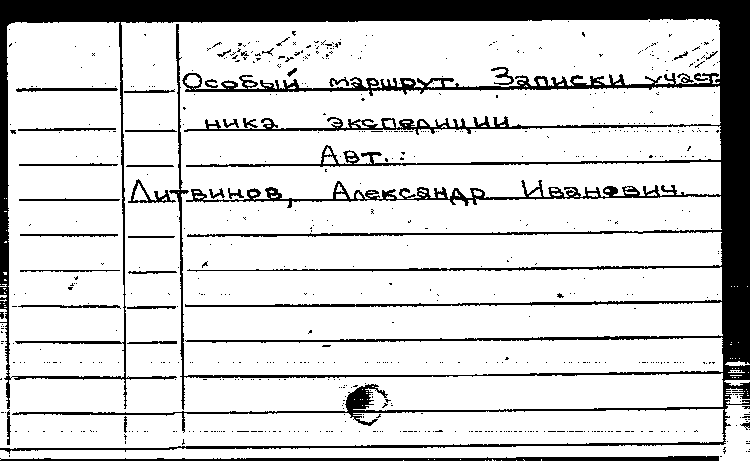 Особый маршрут. Записки участ
ника экспедиции.
Авт.:
Литвинов, Александр Иванович.